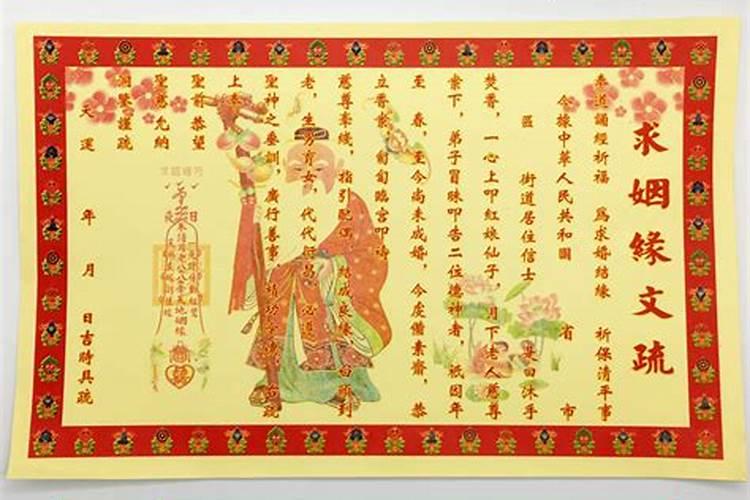 求姻緣文疏
奉道誦經祈福 為求婚結緣 祈保清平事
今據中華人民共和國 省 市
區 街道居住信士 沐手
焚香，一心上叩紅娘仙子，月下佬人慈尊
案下，弟子冒昧叩告二位德神者，祇因年
至 春，至今尚未成婚，今虔備素齋，恭
立香案，匍匐臨宮叩禱
慈尊牽綫，指引配偶，結成良緣，白頭到
老，生男育女，代代 必遵
聖神之垂訓，廣行善事，積功 疏
上奉
聖前恭望
聖慈允納
謹奏謹疏
天運 年 月 日吉時具疏